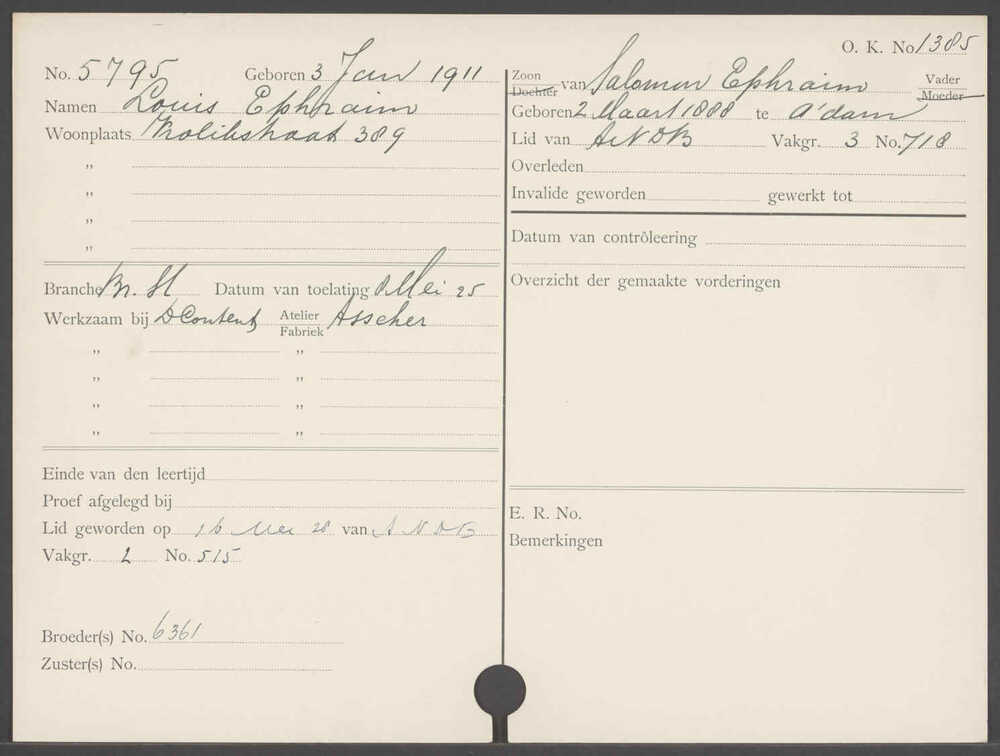 No. 5795 Geboren 3 Jan 1911
Namen Louis Ephraim
Woonplaats 389
"
"
"
"
Branche Br. St Datum van toelating Mei 25
Werkzaam bij D Content Atelier Fabriek Asscher
" "
" "
" "
" "
Einde van den leertijd
Proef afgelegd bij
Lid geworden op 16 Mei 28 van ANDB
Vakgr. 2 No. 515
Broeder(s) No. 6361
Zuster(s) No.
O. K. No 1385
Zoon Dochter van Salomon Ephraim Vader Moeder
Geboren 2 Maart 1888 te A'dam
Lid van ANDB Vakgr. 3 No. 718
Overleden
Invalide geworden gewerkt tot
Datum van contrôleering
Overzicht der gemaakte vorderingen
E. R. No.
Bemerkingen